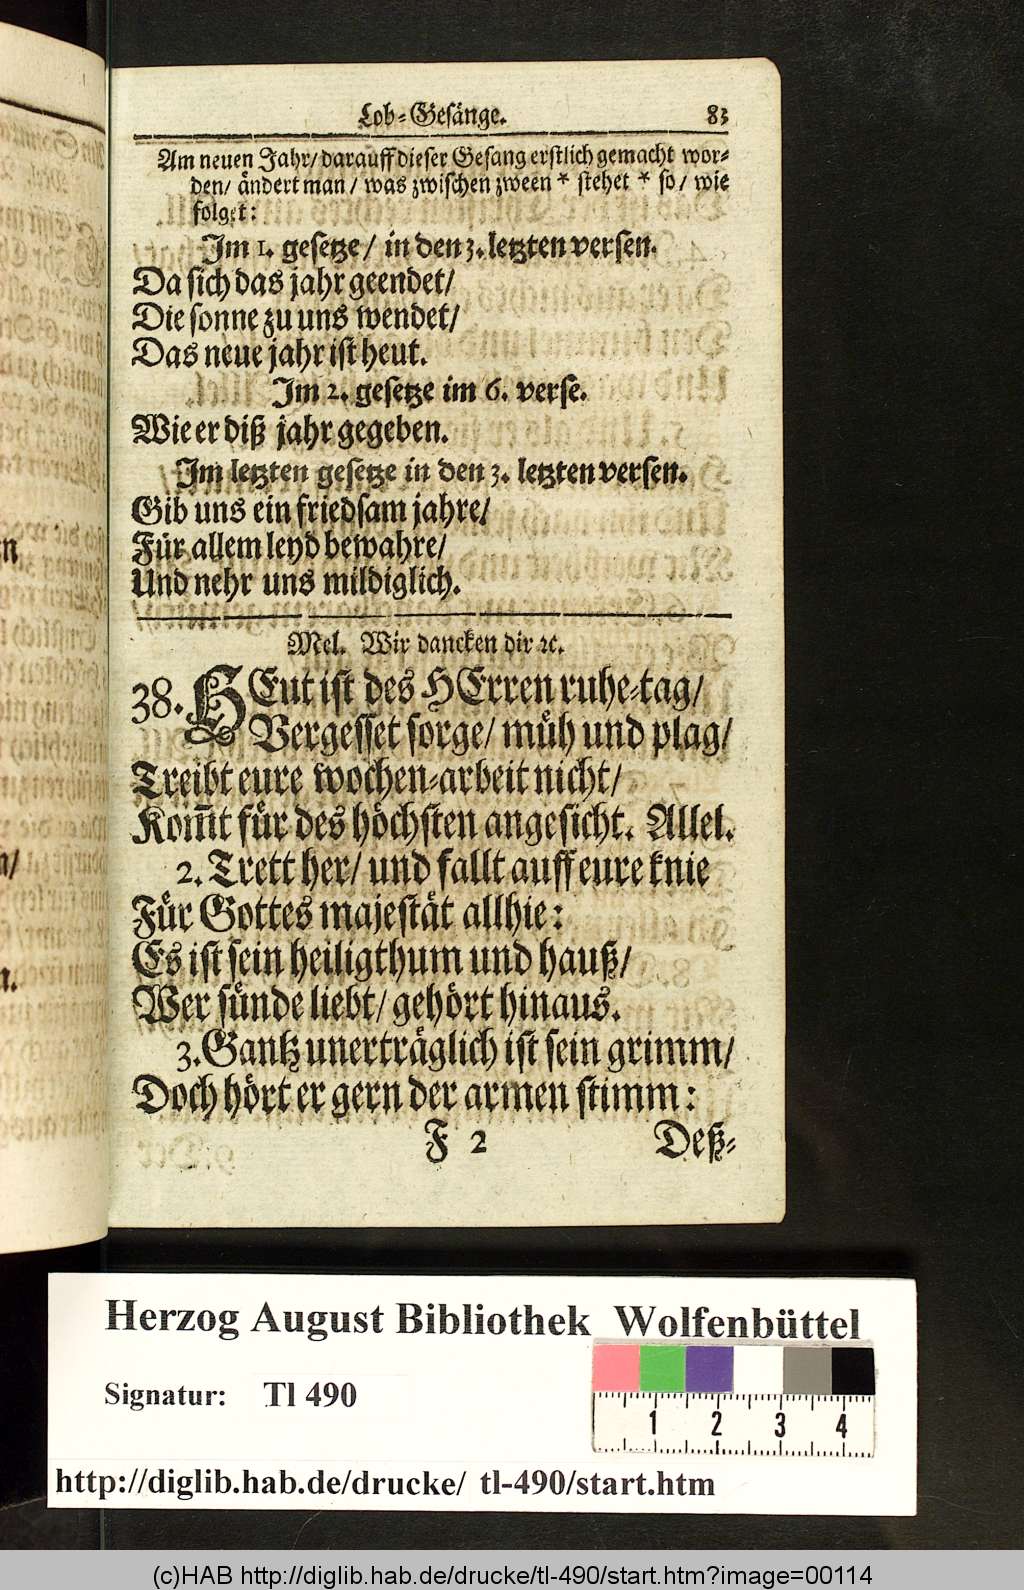 Lob-Gesänge. 83
Am neuen Jahr/ darauff dieser Gesang erstlich gemacht wor-
den/ ändert man / was zwischen zween * stehet * so/ wie
folget:
Im 1. gesetze/ in den 3. letzten versen.
Da sich das jahr geendet/
Die sonne zu uns wendet/
Das neue jahr ist heut.
Im 2. gesetze im 6. verse.
Wie er diß jahr gegeben.
Im letzten gesetze in den 3. letzten versen.
Gib uns ein friedsam jahre/
Für allem leyd bewahre/
Und nehr uns mildiglich.
Mel. Wir dancken dir ꝛc.
38. HEut ist des HErren ruhe-tag/
Vergesset sorge/ müh und plag/
Treibt eure wochen-arbeit nicht/
Kom̃t für des höchsten angesicht. Allel.
2. Trett her/ und fallt auff eure knie
Für Gottes majestät allhie:
Es ist sein heiligthum und hauß/
Wer sünde liebt/ gehört hinaus.
3. Gantz unerträglich ist sein grimm/
Doch hört er gern der armen stimm:
F 2 Deß-
Herzog August Bibliothek Wolfenbüttel
Signatur: Tl 490
1 2 3 4
http://diglib.hab.de/drucke/ tl-490/start.htm
(c)HAB http://diglib.hab.de/drucke/tl-490/start.htm?image=00114